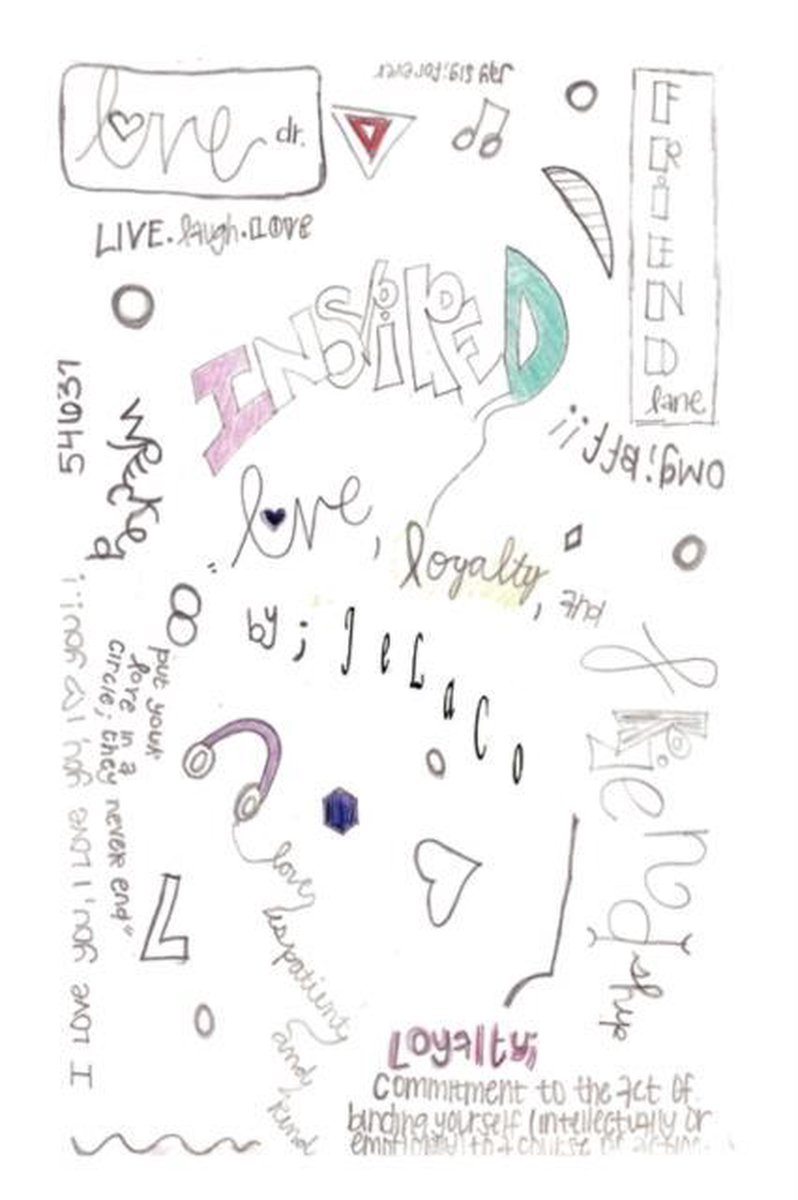 love dr.
jay sig; forever
LIVE. laugh. LOVE
FRiEND
lane
INSpiRED
omg! bff!!
54637
wrecked
"love, loyalty, and
friendship
by; JeLaCo
put your
love in a
circle; they never end"
I love you, I love you, I love you!
L
love
is patient,
and kind
Loyalty;
Commitment to the act of
binding yourself (intellectually or
emotionally) to a course of action.